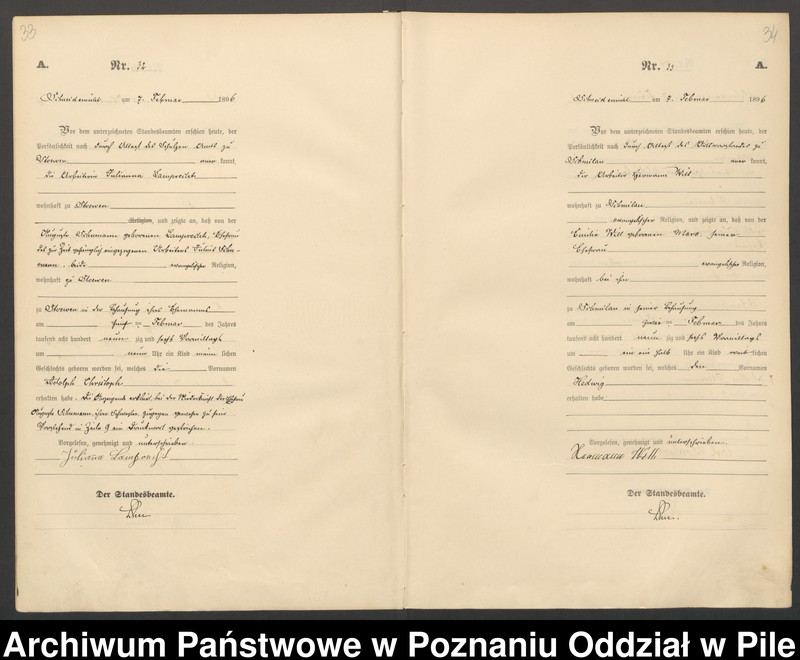 33
A. Nr. 32
Schneidemühl am 7. Februar 1896
Vor dem unterzeichneten Standesbeamten erschien heute, der
Persönlichkeit nach durch Attest des Schulzen Amts zu
Stoewen aner kannt,
die Arbeiterin Julianna Lamprecht
wohnhaft zu Stoewen
Religion, und zeigte an, daß von der
Auguste Schumann geborenen Lamprecht, Ehefrau
des zur Zeit gefänglich eingezogenen Arbeiters Julius Schu-
mann, beide evangelischer Religion,
wohnhaft zu Stoewen
zu Stoewen in der Behausung ihres Ehemannes
am Februar des Jahres
tausend acht hundert neun zig und sechs Vormittags
um neun Uhr ein Kind männ lichen
Geschlechts geboren worden sei, welches die Vornamen
Adolph Christoph
erhalten habe. Die Anzeigende erklärt, bei der Niederkunft der
Auguste Schumann, zugegen gewesen zu sein.
Vorstehend in Zeile 9 ein Druckwort gestrichen.
Vorgelesen, genehmigt und unterschrieben.
Juliana Lamprecht
Der Standesbeamte.
34
Nr. 33 A.
Schneidemühl am 7. Februar 1896
Vor dem unterzeichneten Standesbeamten erschien heute, der
Persönlichkeit nach durch Attest des zu
Schmilau aner kannt,
der Arbeiter Hermann Will
wohnhaft zu Schmilau
evangelischer Religion, und zeigte an, daß von der
Emilie Will geborenen seiner
Ehefrau
evangelischer Religion,
wohnhaft bei ihm
zu Schmilau in seiner Behausung
am Februar des Jahres
tausend acht hundert neun zig und sechs Vormittags
um ein ein halb Uhr ein Kind weib lichen
Geschlechts geboren worden sei, welches den Vornamen
Hedwig
erhalten habe
Vorgelesen, genehmigt und unterschrieben.
Hermann Will
Der Standesbeamte.
Archiwum Państwowe w Poznaniu Oddział w Pile